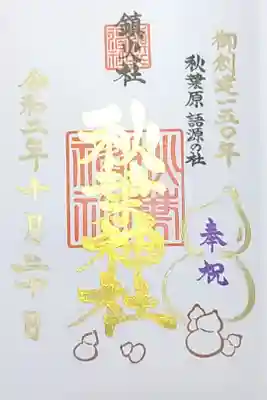 御創建一五〇年
秋葉原 語源の社
奉祝
鎮火社
秋葉神社
令和二年十月二十日